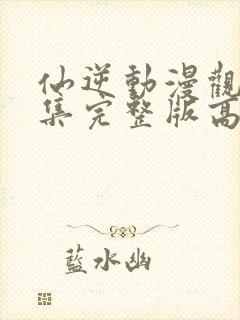 仙逆動漫觀
集完整版高
藍水幽